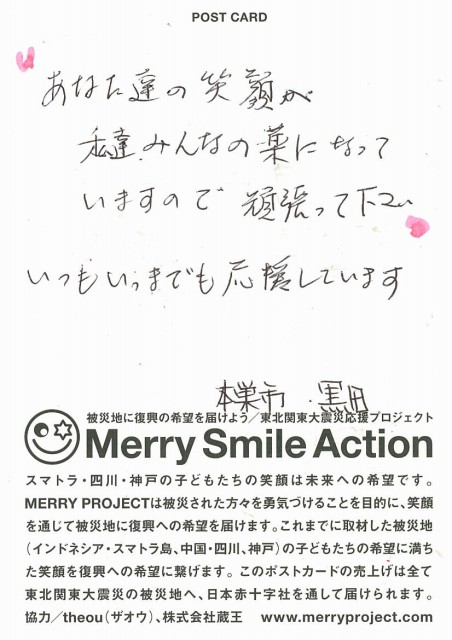 POST CARD
あなた達の笑顔が
私達みんなの薬になって
いますので頑張って下さい
いつもいつまでも応援しています
本巣市・黒田
被災地に復興の希望を届けよう/東北関東大震災応援プロジェクト
Merry Smile Action
スマトラ・四川・神戸の子どもたちの笑顔は未来への希望です。
MERRY PROJECTは被災された方々を勇気づけることを目的に、笑顔
を通じて被災地に復興への希望を届けます。これまでに取材した被災地
(インドネシア・スマトラ島、中国・四川、神戸)の子どもたちの希望に満ち
た笑顔を復興への希望に繋げます。このポストカードの売上げは全て
東北関東大震災の被災地へ、日本赤十字社を通して届けられます。
協力/theou(ザオウ)、株式会社蔵王 www.merryproject.com